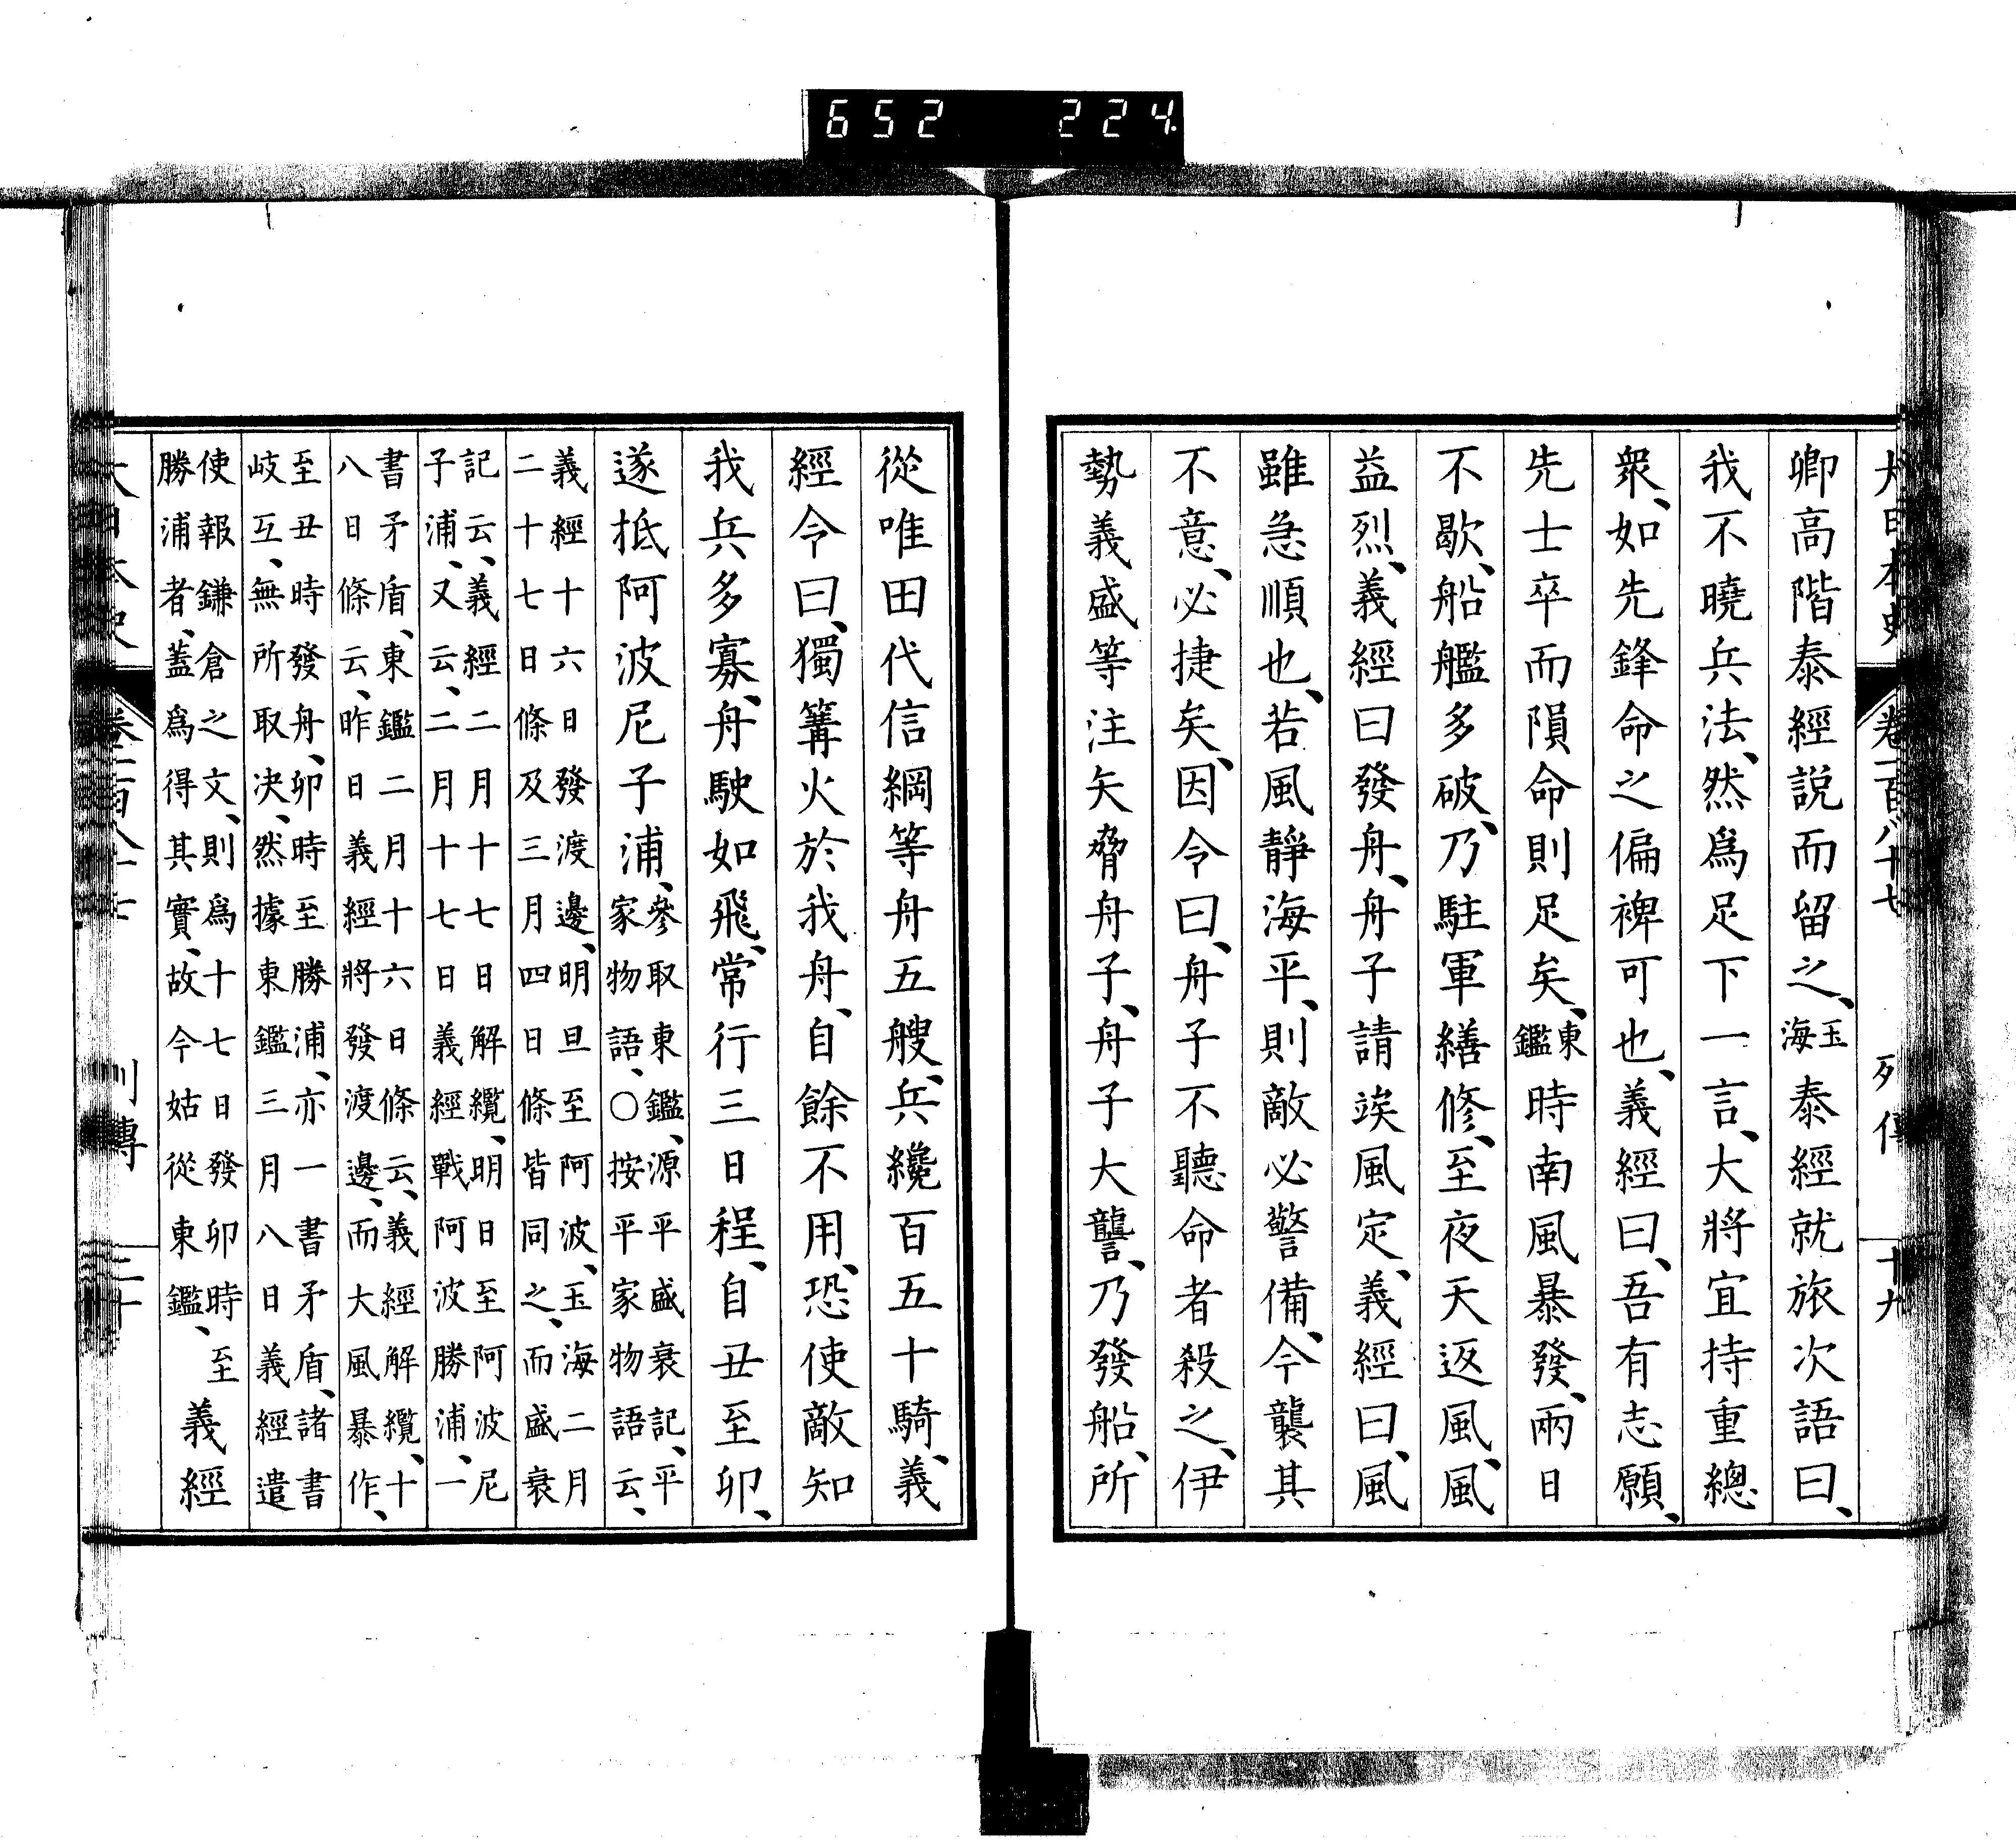 652 224
大日本史 卷一百八十七 列傳 十九
卿高階泰經說而留之、玉海泰經就旅次語曰、
我不曉兵法、然爲足下一言、大將宜持重總
衆、如先鋒命之偏裨可也、義經曰、吾有志願、
先士卒而隕命則足矣、東鑑時南風暴發、兩日
不歇、船艦多破、乃駐軍繕修、至夜天返風、風
益烈、義經曰發舟、舟子請竢風定、義經曰、風
雖急順也、若風靜海平、則敵必警備、今襲其
不意、必捷矣、因令曰、舟子不聽命者殺之、伊
勢義盛等注矢脅舟子、舟子大讋、乃發船、所
從唯田代信綱等舟五艘、兵纔百五十騎、義
經令曰、獨篝火於我舟、自餘不用、恐使敵知
我兵多寡、舟駛如飛、常行三日程、自丑至卯、
遂抵阿波尼子浦、參取東鑑、源平盛衰記、平家物語、○按平家物語云、
義經十六日發渡邊、明旦至阿波、玉海二月二十七日條及三月四日條皆同之、而盛衰
記云、義經二月十七日解纜、明日至阿波尼子浦、又云、二月十七日義經戰阿波勝浦、一
書矛盾、東鑑二月十六日條云、義經解纜、十八日條云、昨日義經將發渡邊、而大風暴作、
至丑時發舟、卯時至勝浦、亦一書矛盾、諸書岐互、無所取決、然據東鑑三月八日義經遣
使報鎌倉之文、則爲十七日發卯時至勝浦者、蓋爲得其實、故今姑從東鑑、義經
大日本史 卷一百八十七 列傳 二十